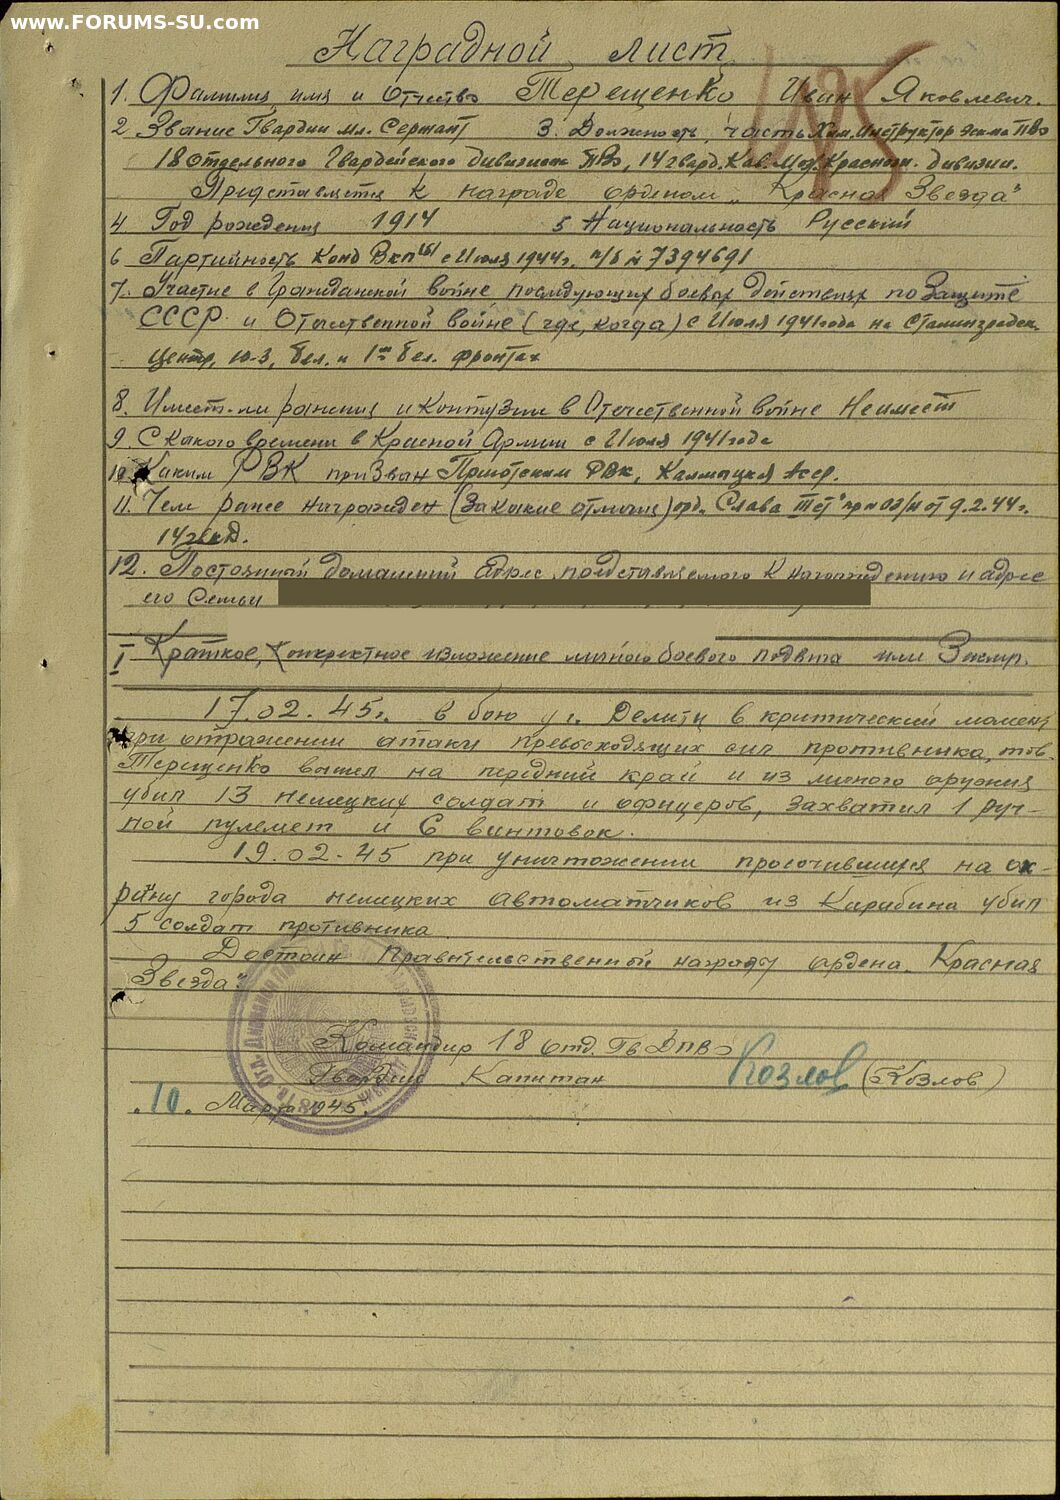 www.FORUMS-SU.com
Наградной лист
1. Фамилия, имя и отчество Терещенко Иван Яковлевич.
2 Звание Гвардии мл. Сержант 3. Должность, часть Хим. Инструктор эск-на ПВО
18 отдельного Гвардейского Дивизиона ПВО, 14 гвард. Кав. Моз. Краснозн. дивизии.
Представляется к награде орденом „Красная Звезда"
4 Год рождения 1914 5 Национальность Русский
6 Партийность Канд ВКП(б) с Июля 1944г. п/б № 7394691
7. Участие в Гражданской войне, последующих боевых действиях по защите
СССР и Отечественной войне (где, когда) с Июля 1941 года на Сталинградск.
Центр, Ю-З, Бел. и 1м Бел. фронтах
8. Имеет-ли ранения и контузии в Отечественной войне Не имеет
9. С какого времени в Красной Армии с Июля 1941 года
10 Каким РВК призван РВК, Калмыцкая Асср.
11. Чем ранее награжден (за какие отличия) орд. Слава III ст. пр № 03/н от 9.2.44г.
14 гвкд.
12. Постоянный домашний адрес представляемого к награждению и адрес
его Семьи
I Краткое, конкретное изложение личного боевого подвига или Заслуг.
17.02.45г. в бою у г. Делитц в критический момент
при отражении атаки превосходящих сил противника, тов.
Терещенко вышел на передний край и из личного оружия
убил 13 немецких солдат и офицеров, захватил 1 руч-
ной пулемет и 6 винтовок.
19.02-45 при уничтожении просочившихся на ок-
раину города немецких автоматчиков из Карабина убил
5 солдат противника
Достоин Правительственной награды ордена „Красная
Звезда".
Командир 18 отд. Гв. ДПВО
Гвардии Капитан Козлов (Козлов)
„10" Марта 1945.